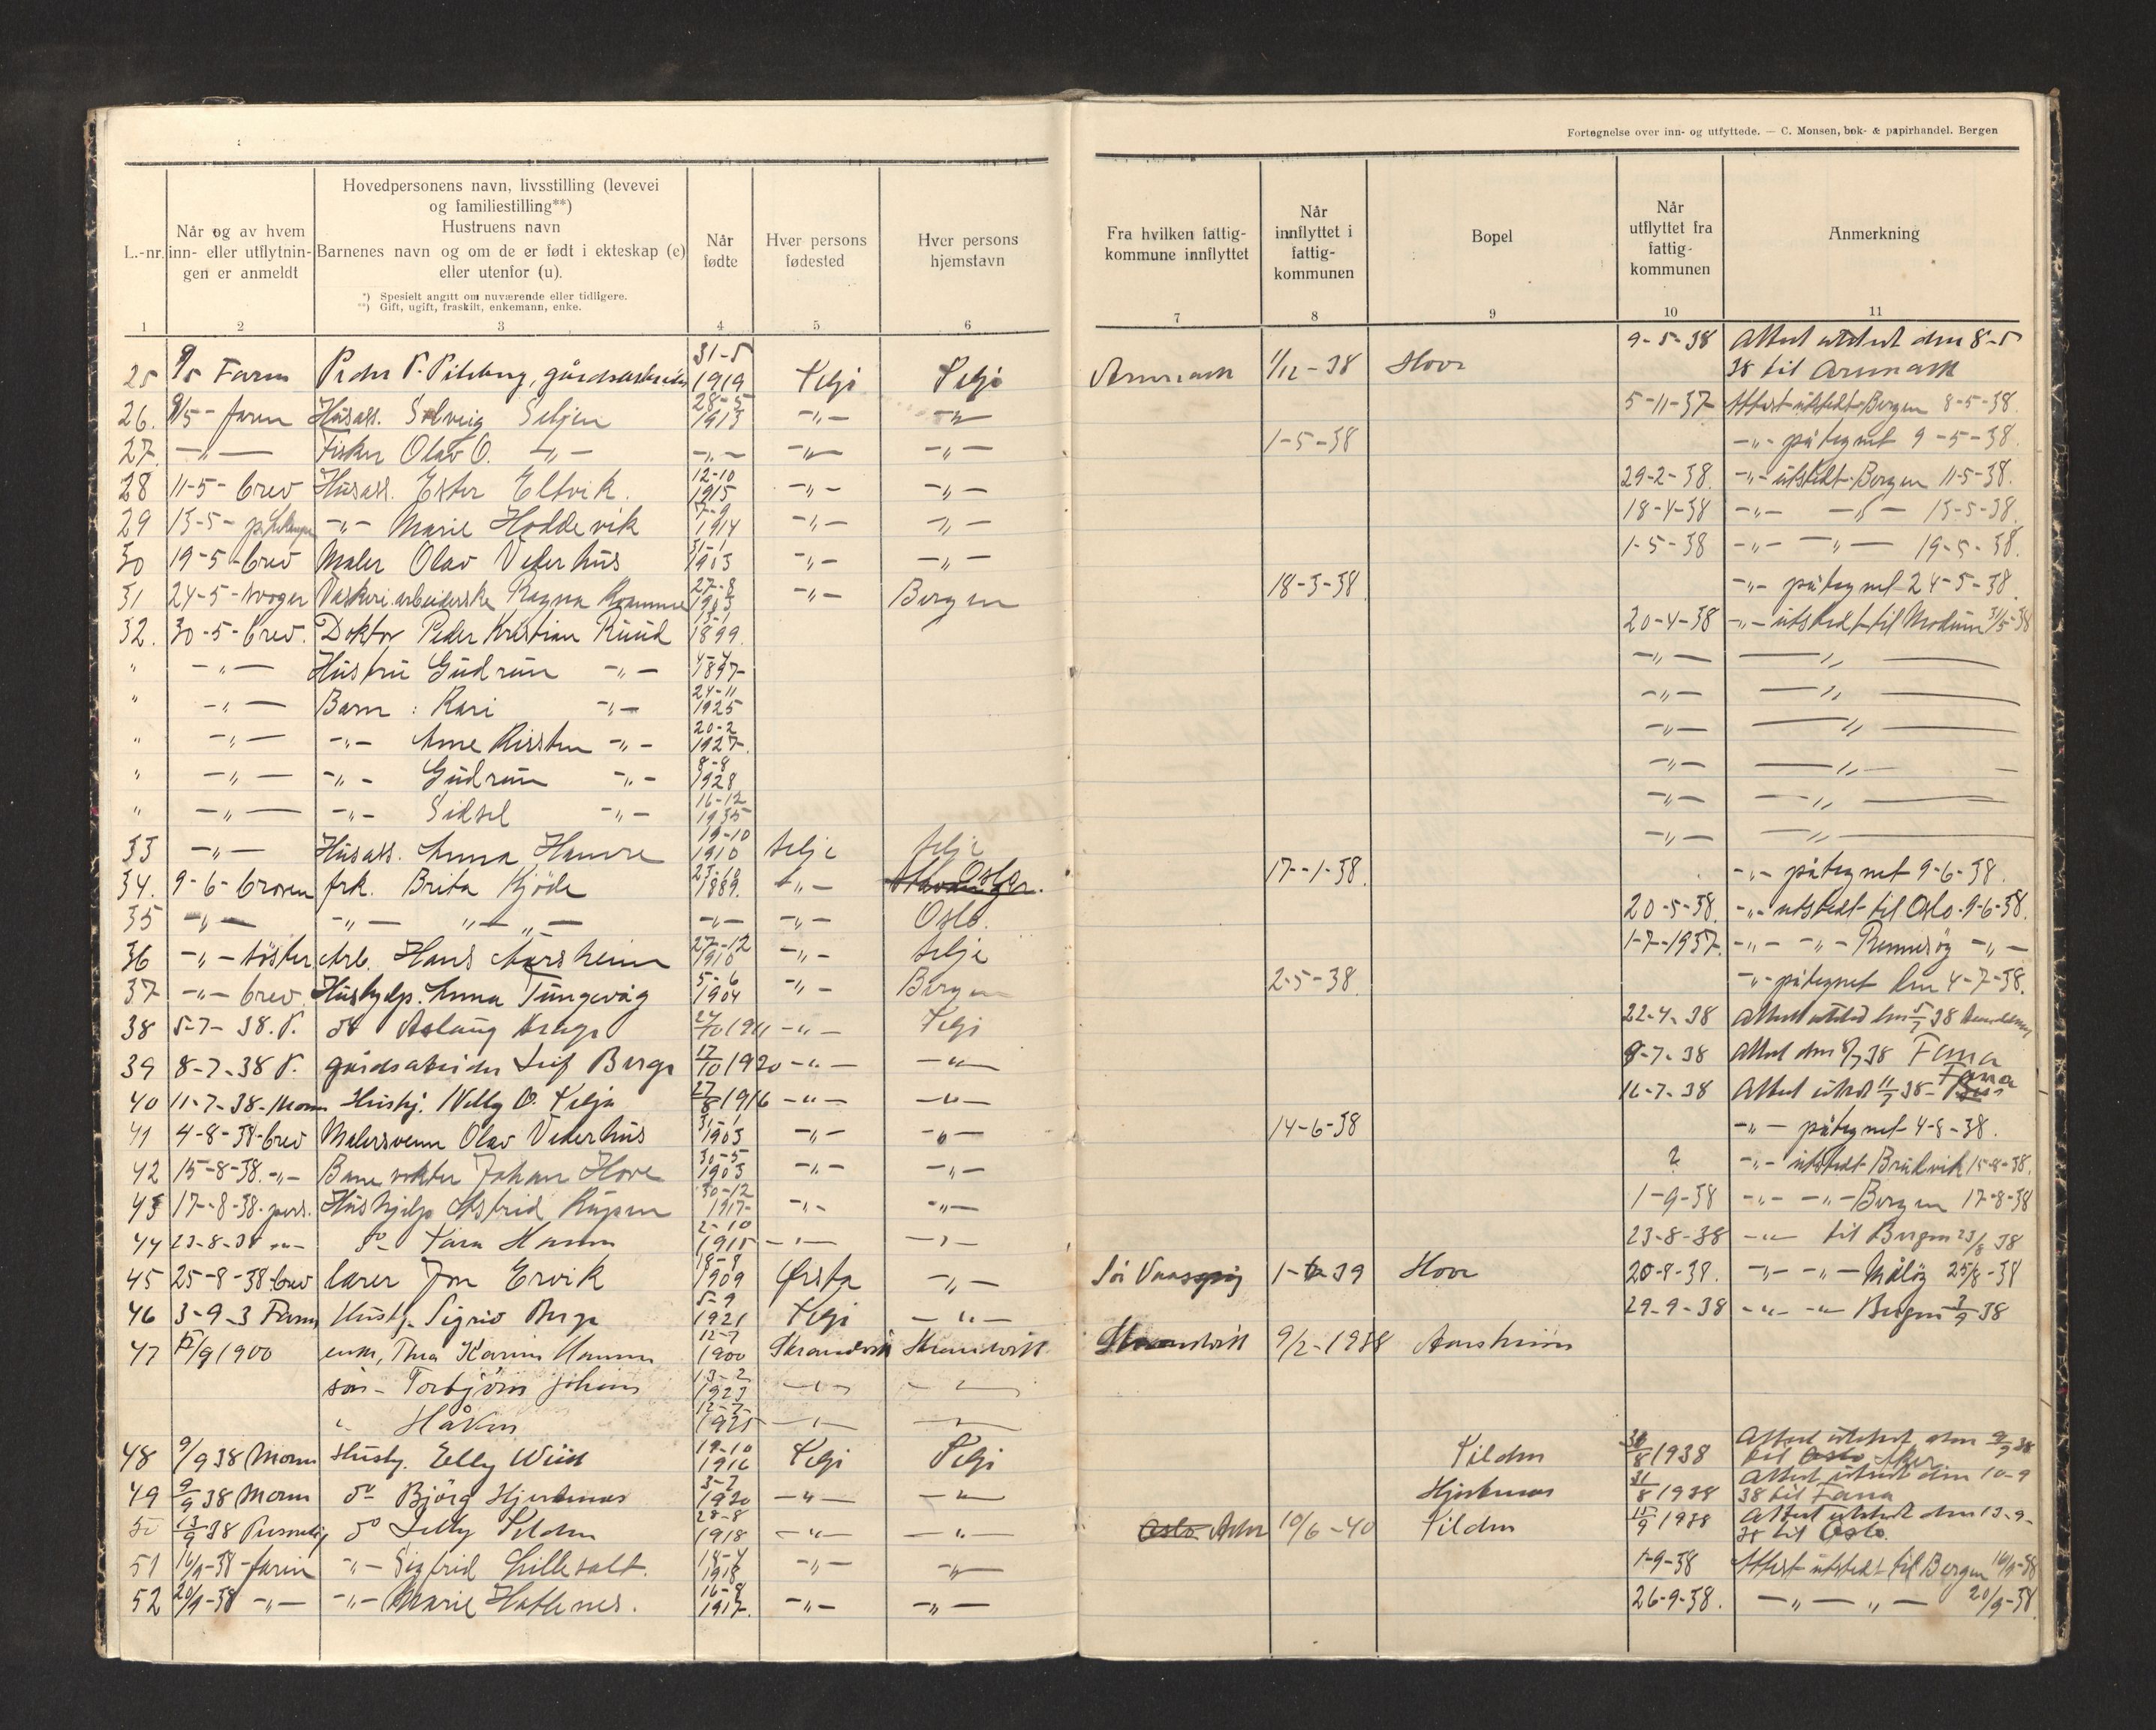 Fortegnelse over inn- og utfyttede. — C. Monsen, bok- & papirhandel. Bergen
L.-nr.
Når og av hvem inn- eller utflytningen er anmeldt
Hovedpersonens navn, livsstilling (levevei og familiestilling**)
Hustruens navn
Barnenes navn og om de er født i ekteskap (e) eller utenfor (u).
*) Spesielt angitt om nuværende eller tidligere.
**) Gift, ugift, fraskilt, enkemann, enke.
Når fødte
Hver persons fødested
Hver persons hjemstavn
Fra hvilken fattigkommune innflyttet
Når innflyttet i fattigkommunen
Bopel
Når utflyttet fra fattigkommunen
Anmerkning
1 2 3 4 5 6 7 8 9 10 11
25 9/5 Faren Peder P. gårdsarbeider 31-5 1919 Selje Selje 1/12-38 Hove 9-5-38 Attest utstedt den 8-5 38 til
26. 9/5- faren Husass. Solveig Seljen 28-5 1913 -„- -„- 5-11-37 Attest utstedt Bergen 8-5-38.
27. -„- Fisker Olav O. -„- -„- -„- -„- 1-5-38 -„- påtegnet 9-5-38.
28 11-5- brev Husass. Ester Eltvik. 12-10 1915 -„- -„- 29-2-38. -„- utstedt Bergen 11-5-38.
29 13-5- -„- Marie Hoddevik 5-9 1914 -„- -„- 18-4-38 -„- -„- 13-5-38.
30 19-5-brev Maler Olav Vederhus 31-1 1903 -„- -„- 1-5-38 -„- -„- 19-5-38.
31 24-5-svoger Vaskeriarbeiderske Ragna 27-8 1903 -„- Bergen 18-3-38. -„- påtegnet 24-5-38.
32. 30-5-brev. Doktor Peder Kristian Ruud 1899. 20-4-38 -„- utstedt til Modum 31/5-38
„ -„- Hustru Gudrun -„- 4-4 1897 -„- -„-
„ -„- Barn: Kari -„- 24-11 1925 -„- -„-
„ -„- -„- Anne Kirsten -„- 20-2 1927. -„- -„-
„ -„- -„- Gudrun -„- 8-8 1928 -„- -„-
„ -„- -„- Sidsel -„- 16-12 1935 -„- -„-
33 -„- Husass. Anna Hamre 19-10 1910 Selje Selje -„- -„-
34. 9-6-broren frk. Brita Kjöde 23-10 1889. -„- Oslo 17-1-38. -„- påtegnet 9-6-38.
35 -„- -„- „-„- -„- -„- Oslo. 20-5-38. -„- utstedt til Oslo 9-6-38.
36 -„- söster Arb. Hans Aarsheim 27-12 1910 -„- Selje 1-7-1937. -„- -„- Rennesöy -„-
37 -„- brev. Hushjelp. Anna Tungevåg 5-6 1904 -„- Bergen 2-5-38. -„- påtegnet den 4-7-38.
38 5-7-38. P. do Aslaug Berge 24/10 1911 -„- Selje 22-4-38 Attest utsted den 5/7 38
39 8-7-38 P. gårdsarbeider Leif Berge 17/10 1920 -„- -„- 8-7-38 Attest den 8/7 38 Fana
40 11-7-38-Moren Hushj. Nelly O. Selje 27/8 1916 -„- -„- 16-7-38 Attest utstedt 11/7 38- Fana
41 4-8-38-brev Malersvenn Olav Vederhus 31-1 1903 -„- -„- 14-6-38 -„- påtegnet 4-8-38.
42 15-8-38. -„- Banevokter Johan Hove 30-5 1903 -„- -„- ? -„- utstedt Bruvik 15-8-38.
43 17-8-38-pers. Hushjelp Astrid 30-12 1917 -„- -„- 1-9-38 -„- -„- Bergen 17-8-38
44 23-8-38 -„- do Tara Hamre 2-10 1915 -„- -„- 23-8-38 -„- til Bergen 23/8 38
45 25-8-38.brev lærer Jon Ervik 18-8 1909 Ørsta -„- Sör Vaagsøy 39 Hove 20-8-38. -„- -„- Måløy 25/8-38
46 3-9-3 Faren Hushj. Sigrid Berge 5-9 1921 Selje -„- 29-9-38 -„- -„- Bergen 3/9 38
47 5/9 1900 enke, Thea Karine Hamre 12-7 1900 Strandvik Strandvik Strandvik 9/2-1938 Aarsheim
sön- Torbjörn Johan 13-2 1923 -„- -„-
„ Håkon 12-7- 1925 -„- -„-
48 9/9 38 Moren Hushj. Elly Wiik 19-10 1916 Selje Selje Silden 30/8 1938 Attest utstedt den 9/9 38 til Oslo Aker
49 9/9 38 Moren do Björg Hjertenes 3-2 1920 -„- -„- Hjertenes 31/8 1938 Attest utstedt den 10-9 38 til Fana
50 13/9 38 Personlig do Lilly Silden 28-8 1918 -„- -„- Oslo Aker 10/6-40 Silden 15/9 1938 Attest utstedt den 13-9-38 til Oslo.
51 16/9-38-faren -„- Sigfrid Lillesalt. 18-4 1918 -„- -„- 1-9-38 Attest utstedt til Bergen 16/9-38
52 20/9-38 -„- -„- Marie Hatlenes. 16-8 1917. -„- -„- 26-9-38. -„- „- 20/9-38.